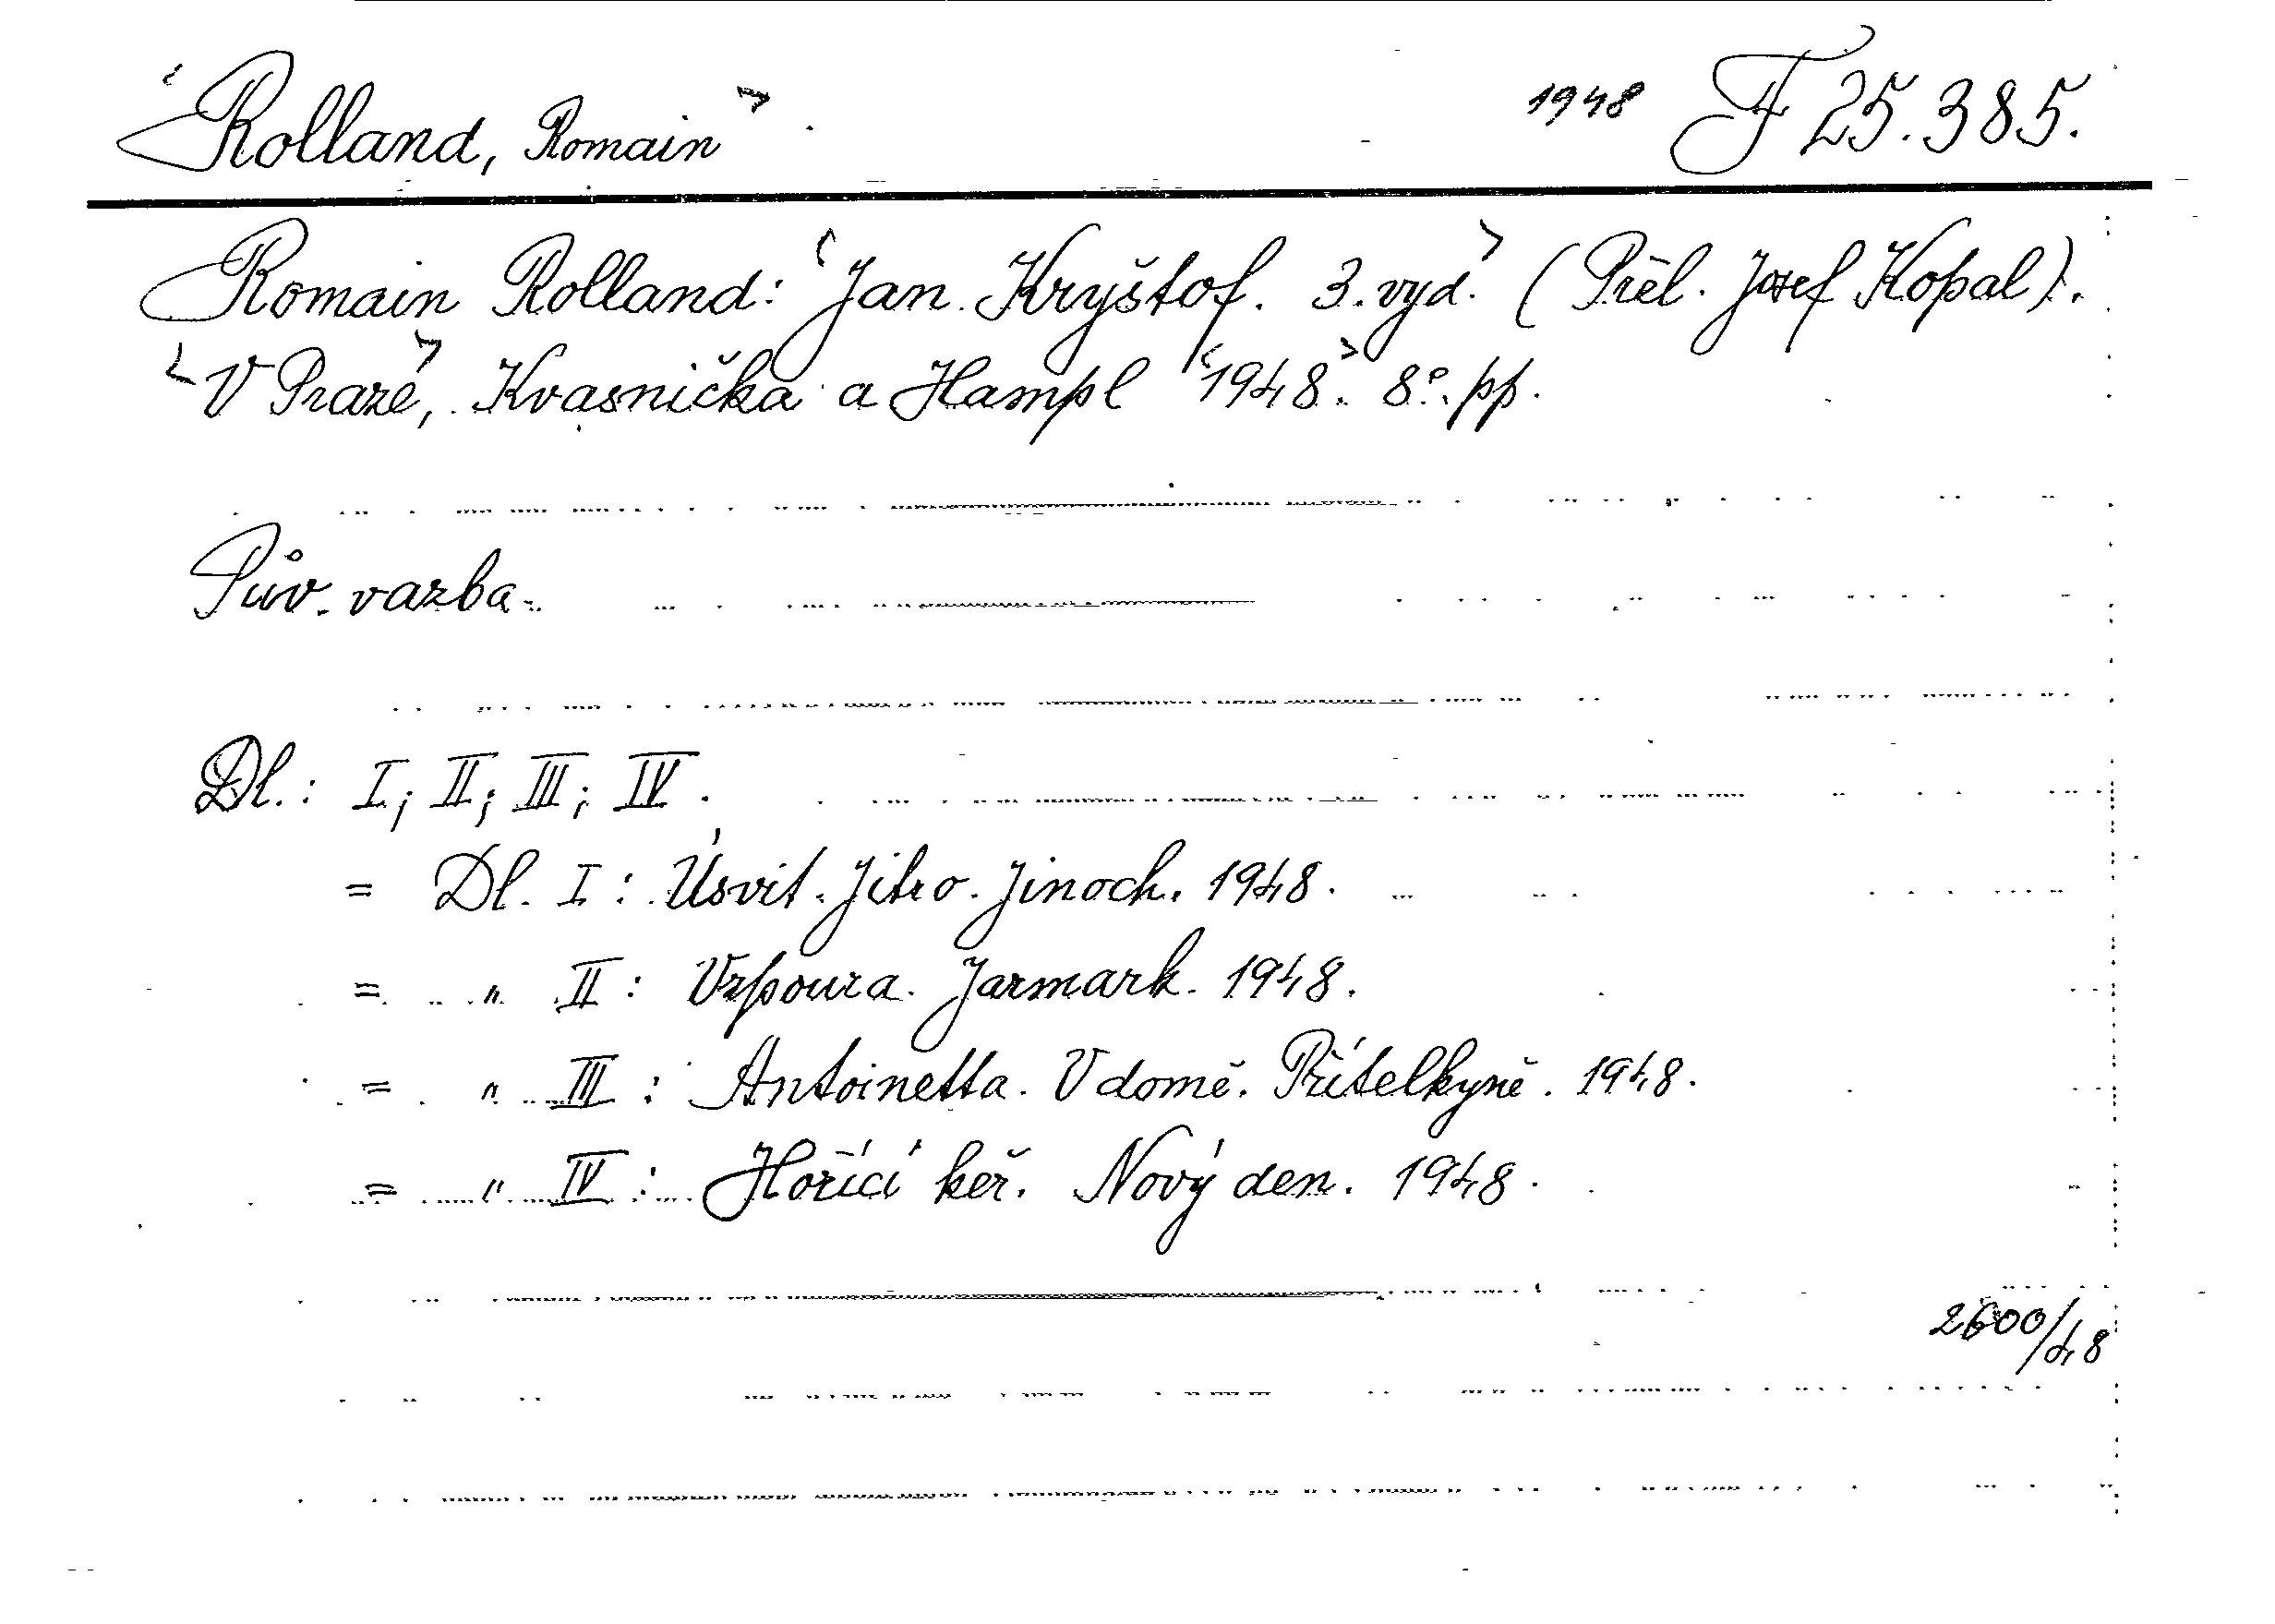 <Rolland, Romain> 1948 F 25.385.
Romain Rolland: <Jan Kryštof. 3. vyd.> (Přel. Josef Kopal).
<V Praze>, Kvasnička a Hampl <1948>. 8°. pp.
Pův. vazba.
Dl.: I; II; III; IV.
= Dl. I: Úsvit. Jitro. Jinoch. 1948.
= " II: Vzpoura. Jarmark. 1948.
= " III: Antoinetta. V domě. Přítelkyně. 1948.
= " IV: Hořící keř. Nový den. 1948.
2600/48